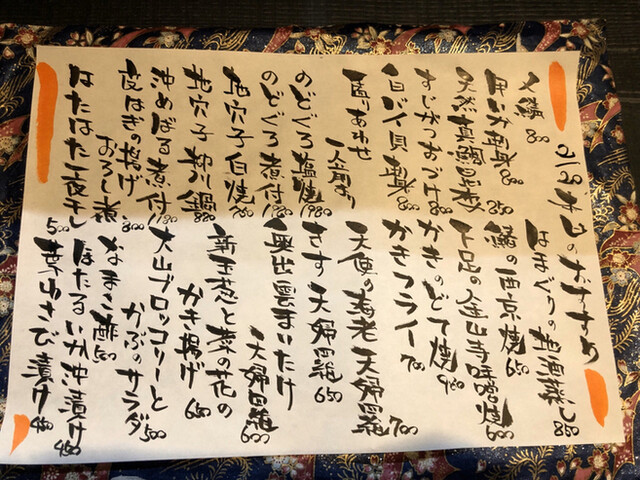 のおすすめ
〆鯖 800
はまぐりの地酒蒸し 850
鯖の西京焼 650
下足の金山寺味噌焼 600
すじがつおづけ 800
かきのどて焼 980
白バイ貝
かきフライ 700
盛りあわせ
一人前より
天使の海老天婦羅 700
のどぐろ塩焼 1980
きす天婦羅 650
のどぐろ煮付 1980
奥出雲まいたけ
天婦羅 600
地穴子白焼
新玉葱と菜の花の
かき揚げ 650
地穴子柳川鍋 880
大山ブロッコリーと
かぶのサラダ 500
沖めばる煮付
なまこ酢
皮はぎの揚げ
おろし煮 800
ほたるいか沖漬け 480
はたはた一夜干し 500
葉わさび漬け 480